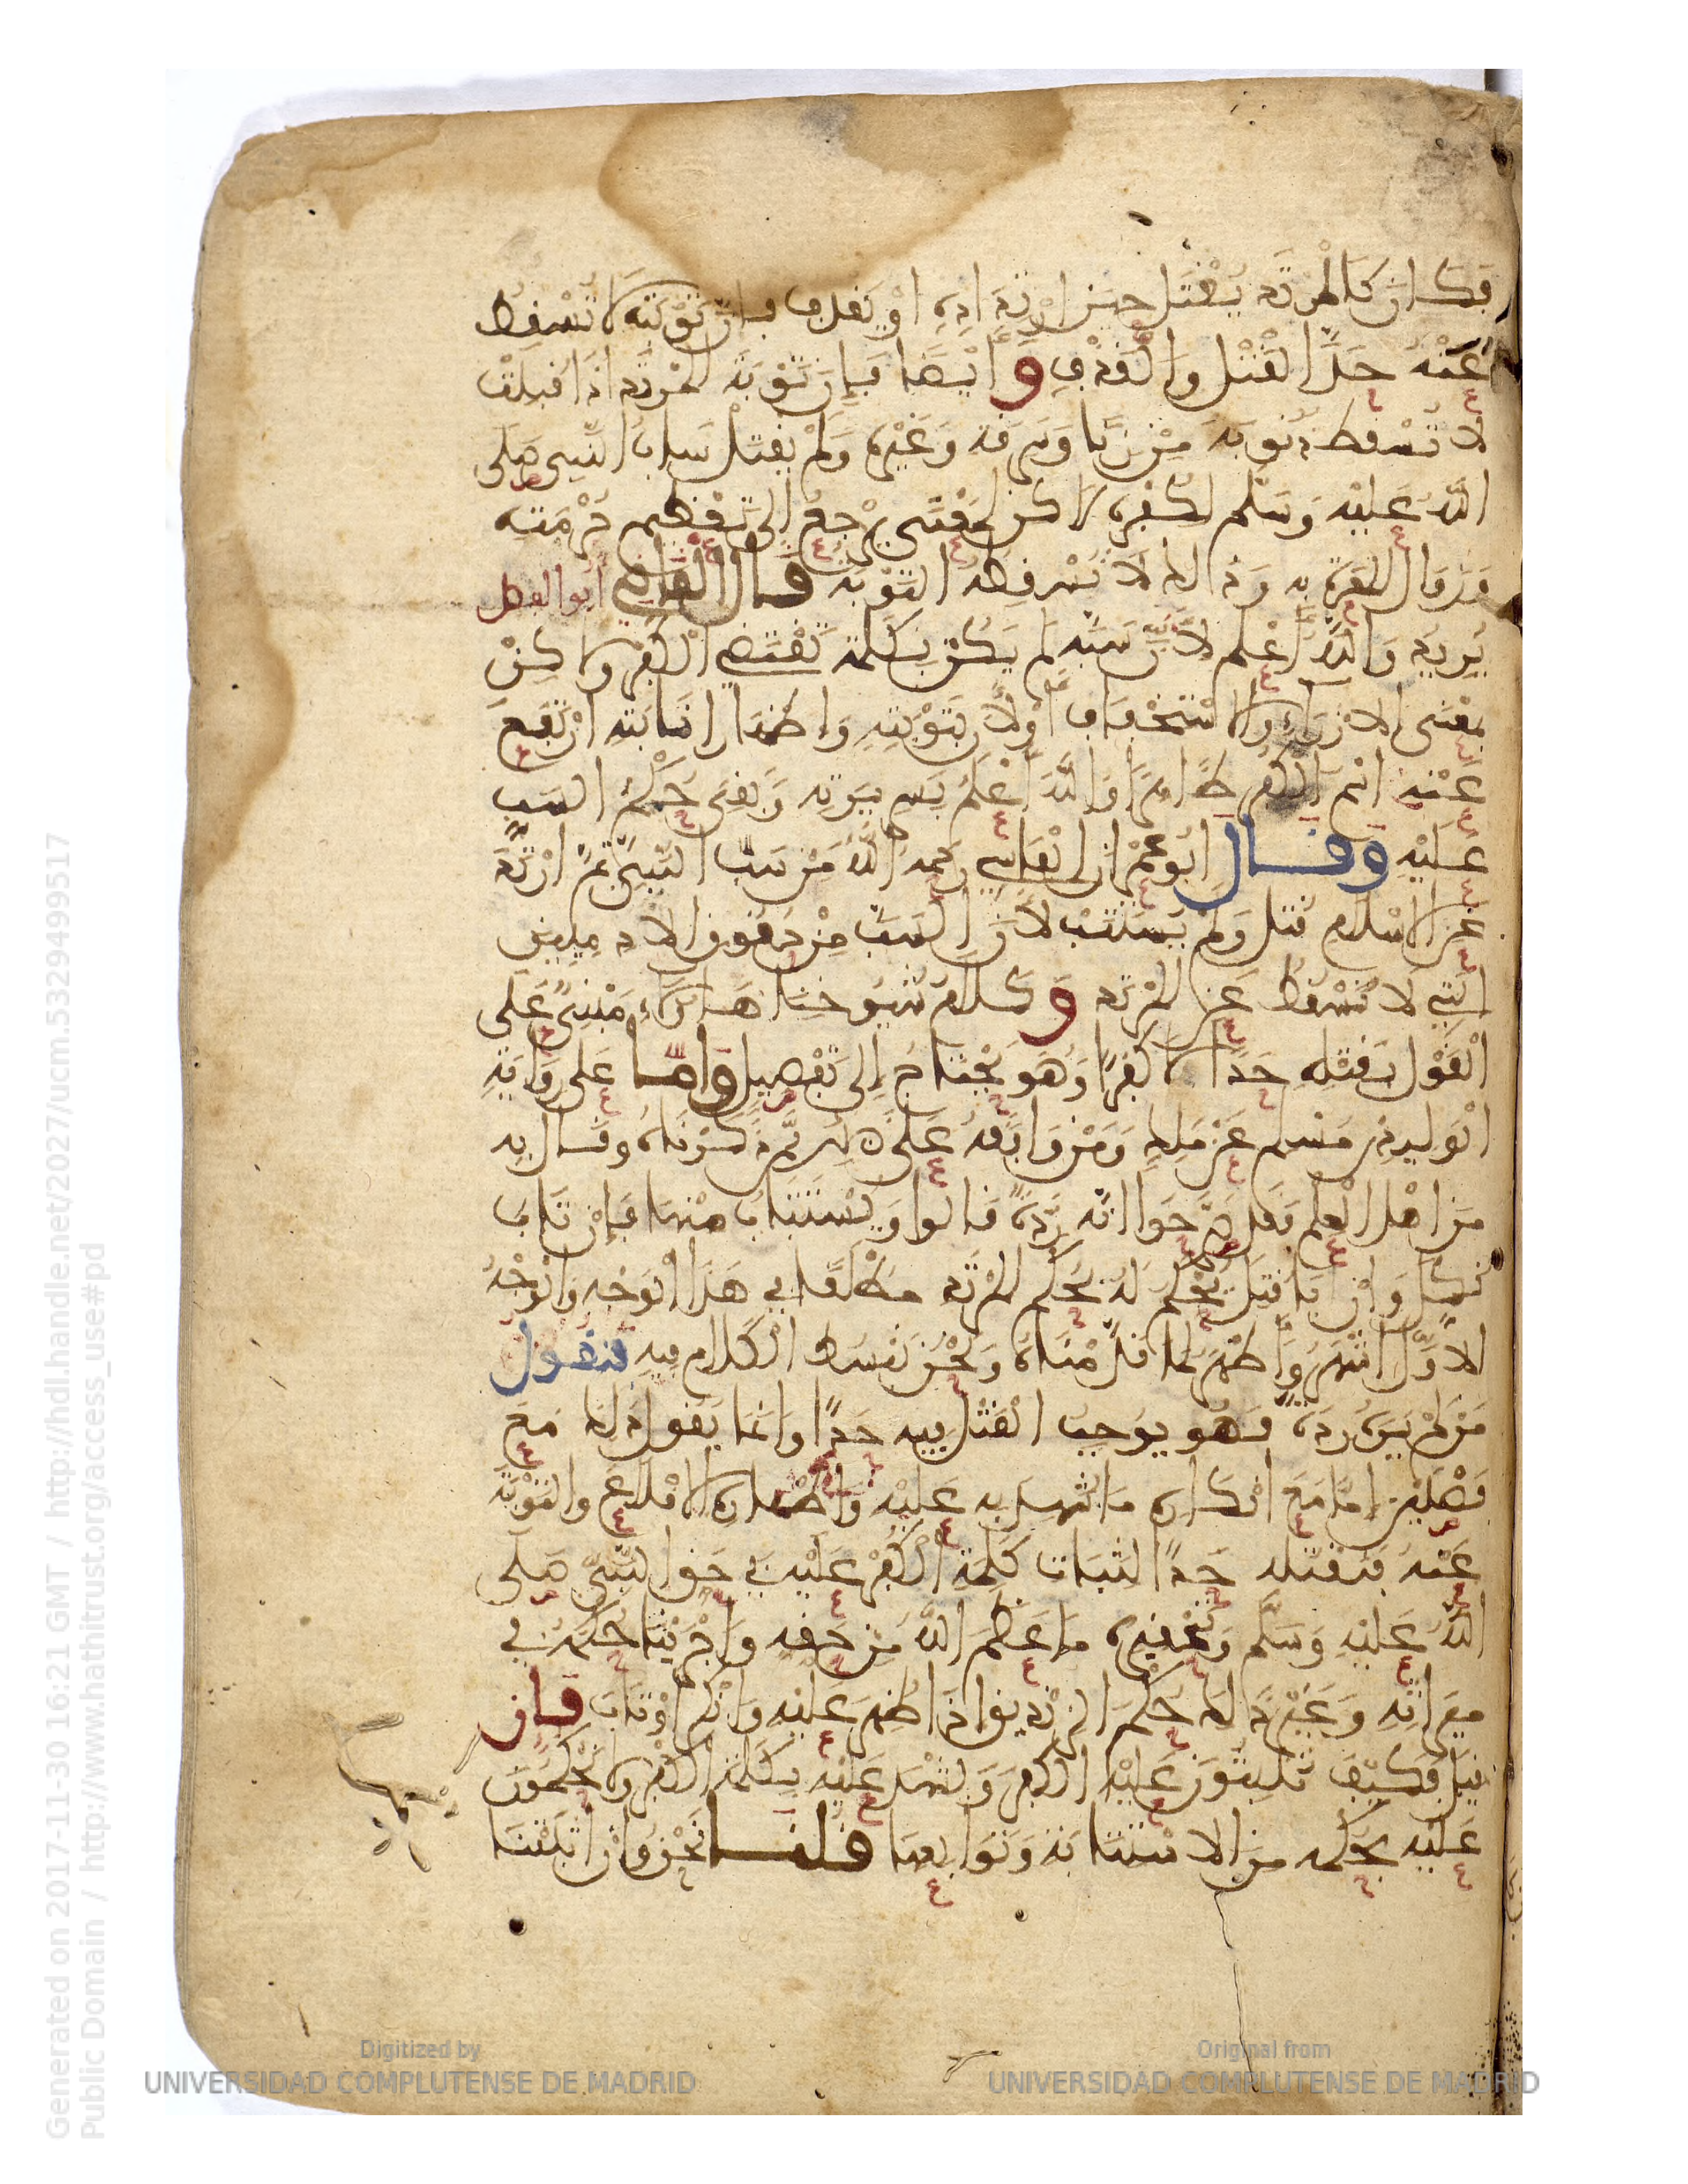 فكان كالمرتد يقتل حين ارتداده او يقذف فان توبته لا تسقط
عنه حد القتل والقذف وايضا فان توبة المرتد اذا قبلت
لا تسقط ذنوبه من زنا وسرقة وغيرها ولم يقتل ساب النبي صلى
الله عليه وسلم لكفره لاكن لمعنى يرجع الى تعظيم حرمته
وزوال المعرة به وذالك لا تسقطه التوبة قال القاضي ابو الفضل
يريد والله اعلم لان سبه لم يكن بكلمة تقتضي الكفر ولاكن
بمعنى الازراء والاستخفاف او لان بتوبته واظهار انابته ارتفع
عنه اسم الكفر ظاهرا والله اعلم بسريرته وبقي حكم السب
عليه وقال ابو عمران الفاسي رحمه الله من سب النبي ثم ارتد
عن الاسلام قتل ولم يستتب لان السب من حقوق الادميين
التي لا تسقط عن المرتد وكلام شيوخنا هاؤلاء مبني على
القول بقتله حدا لا كفرا وهو يحتاج الى تفصيل واما على رواية
الوليد بن مسلم عن ملك ومن وافقه على ذلك ممن ذكرناه وقال به
من اهل العلم فقد صرحوا انه ردة قالوا ويستتاب منها فان تاب
نكل وان ابا قتل فحكم له بحكم المرتد مطلقا في هذا الوجه والوجه
الاول اشهر واظهر لما قدمناه ونحن نبسط الكلام فيه فنقول
من لم يره ردة فهو يوجب القتل فيه حدا وانما يقول ذلك مع
فصلين اما مع انكاره ما شهد به عليه واظهاره الاقلاع والتوبة
عنه فنقتله حدا لثبات كلمة الكفر عليه في حق النبي صلى
الله عليه وسلم وتحقيره ما عظم الله من حقه واجرينا حكمه في
ميراثه وغير ذلك حكم الزنديق اذا ظهر عليه وانكر او تاب فان
قيل فكيف تثبتون عليه الكفر ويشهد عليه بكلمة الكفر ولا تحكمون
عليه بحكمه من الاستتابة وتوابعها قلنا نحن وان اثبتنا
Generated on 2017-11-30 16:21 GMT / http://hdl.handle.net/2027/ucm.5329499517
Public Domain / http://www.hathitrust.org/access_use#pd
Digitized by
UNIVERSIDAD COMPLUTENSE DE MADRID
Original from
UNIVERSIDAD COMPLUTENSE DE MADRID